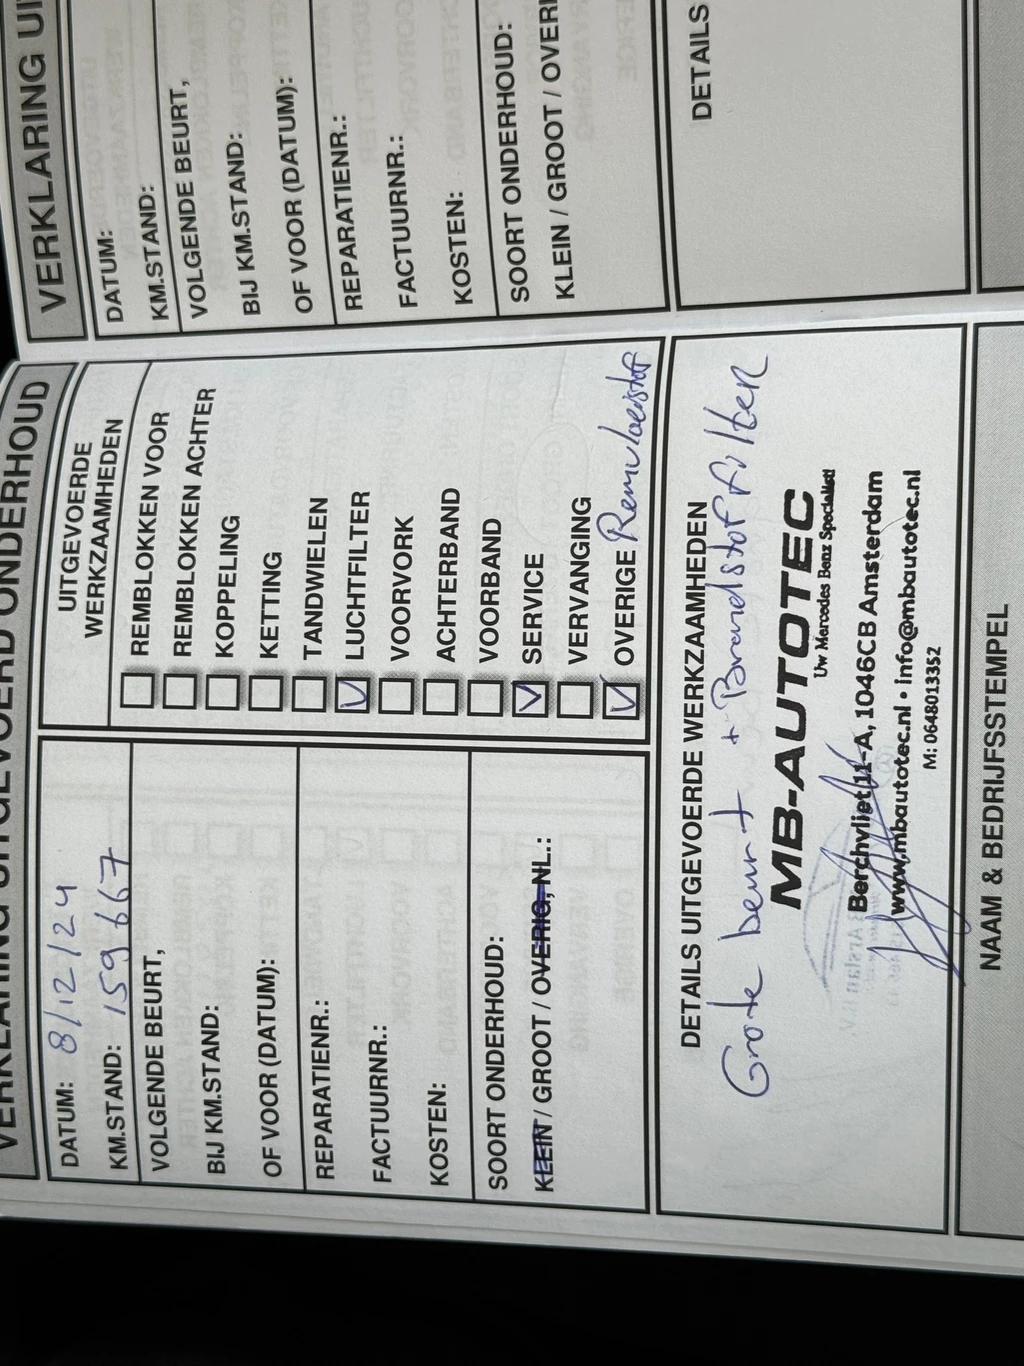 VERKLARING UITGEVOERD ONDERHOUD
DATUM: 8/12/24
KM.STAND: 159667
VOLGENDE BEURT,
BIJ KM.STAND:
OF VOOR (DATUM):
REPARATIENR.:
FACTUURNR.:
KOSTEN:
SOORT ONDERHOUD:
KLEIN / GROOT / OVERIG, NL.:
UITGEVOERDE
WERKZAAMHEDEN
REMBLOKKEN VOOR
REMBLOKKEN ACHTER
KOPPELING
KETTING
TANDWIELEN
LUCHTFILTER
VOORVORK
ACHTERBAND
VOORBAND
SERVICE
VERVANGING
OVERIGE Remvloeistof
DETAILS UITGEVOERDE WERKZAAMHEDEN
Grote beurt + Brandstof filter
MB-AUTOTEC
Uw Mercedes Benz Specialist!
Berchvliet 11-A, 1046CB Amsterdam
www.mbautotec.nl • info@mbautotec.nl
M: 0648013352
NAAM & BEDRIJFSSTEMPEL
VERKLARING UI
DATUM:
KM.STAND:
VOLGENDE BEURT,
BIJ KM.STAND:
OF VOOR (DATUM):
REPARATIENR.:
FACTUURNR.:
KOSTEN:
SOORT ONDERHOUD:
KLEIN / GROOT / OVERI
DETAILS